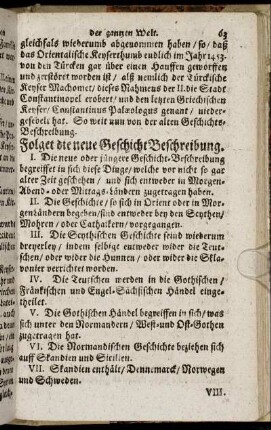 der gantzen Welt. 63
gleichfals wiederumb abgenommen haben / so / daß
das Orientalische Keyserthumb endlich im Jahr 1453.
von den Türcken gar über einen Hauffen geworffen
und zerstöret worden ist / als nemlich der Türckische
Keyser Machomet / dieses Nahmens der II. die Stadt
Constantinopel erobert / und den letzten Griechischen
Keyser / Constantinus Palæologus genant / nieder-
gesebelt hat. So weit nun von der alten Geschichts-
Beschreibung.
Folget die neue Geschicht Beschreibung.
I. Die neue oder jüngere Geschicht-Beschreibung
begreiffet in sich diese Dinge / welche vor nicht so gar
alter Zeit geschehen / und sich entweder in Morgen-
Abend- oder Mittags-ländern zugetragen haben.
II. Die Geschichte / so sich in Orient oder in Mor-
genländern begeben / sind entweder bey den Scythen /
Mohren / oder Cathakern / vorgegangen.
III. Die Scythischen Geschichte seind wiederum
dreyerley / indem selbige entweder wider die Teut-
schen / oder wider die Hunnen / oder wider die Skla-
vonier verrichtet worden.
IV. Die Teutschen werden in die Gothischen /
Fränkischen und Engel-Sächsischen Händel einge-
theilet.
V. Die Gothischen Händel begreiffen in sich / was
sich unter den Normandern / West- und Ost-Gothen
zugetragen hat.
VI. Die Normandischen Geschichte beziehen sich
auff Skandien und Sicilien.
VII. Skandien enthält / Dennemarck / Norwegen
und Schweden.
VIII.